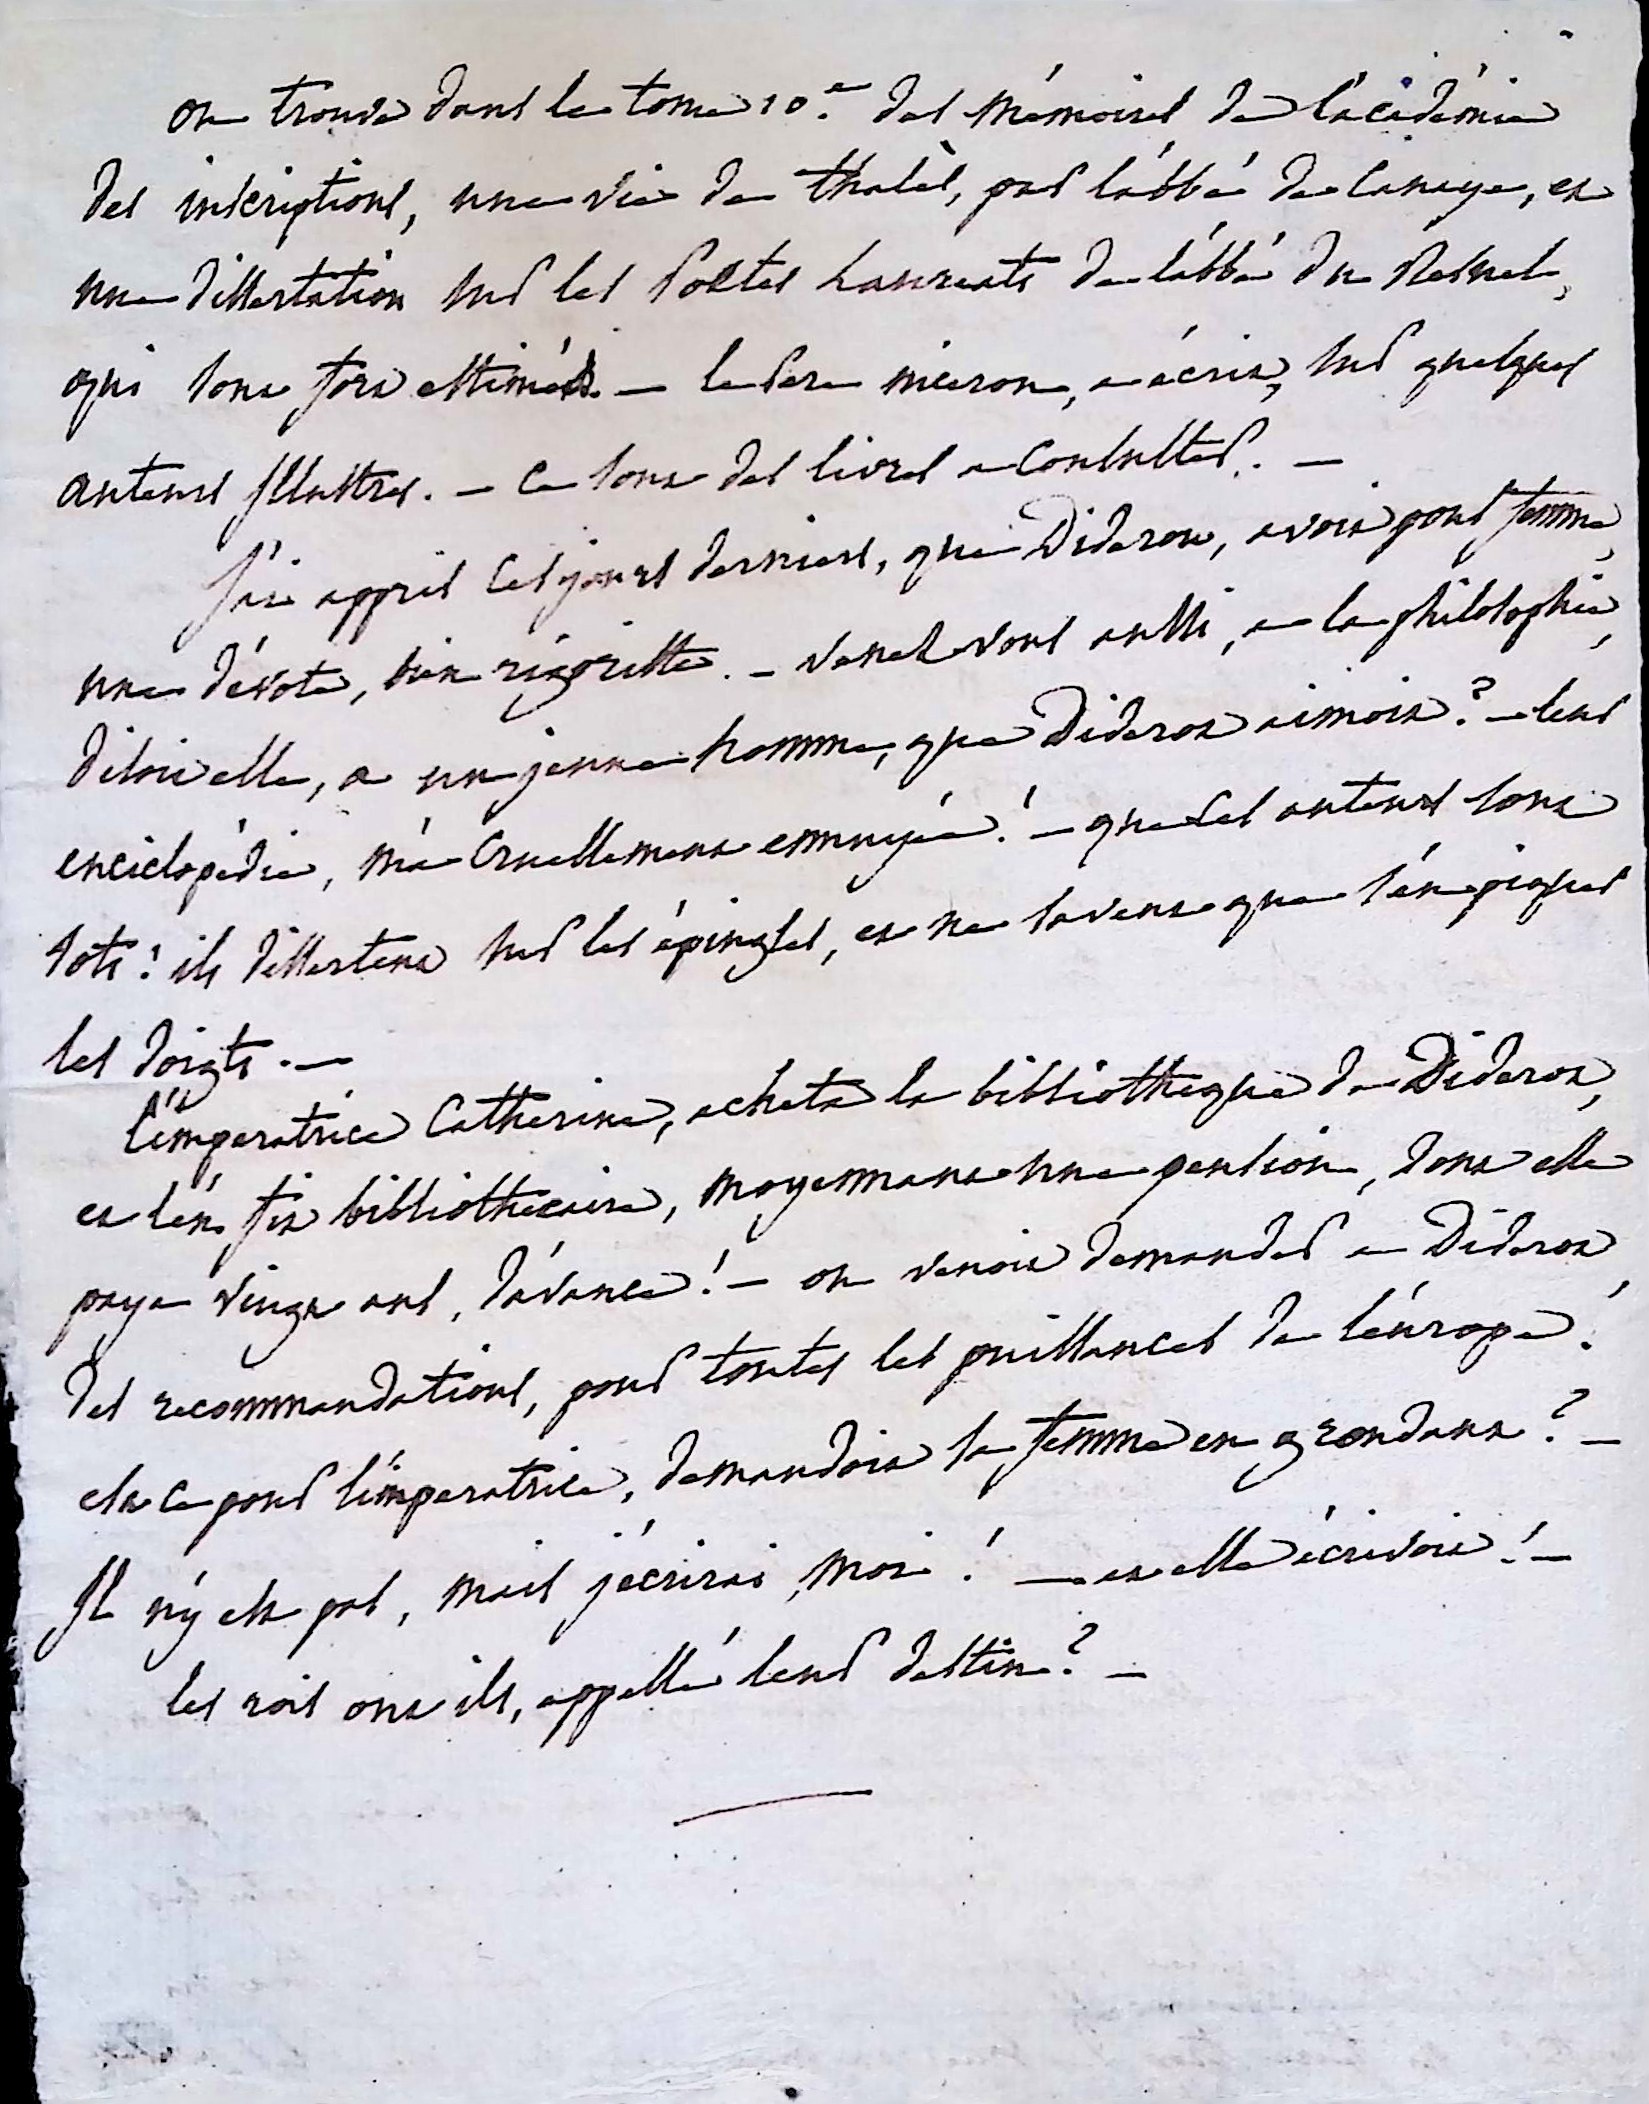 on trouve dans le tome 10.e des mémoires de l'académie
des inscriptions, une vie de thalès, par l'abbé de canaye, et
une dissertation sur les Poëtes Laureats de l'abbé du Resnel,
qui sont fort estimés. — le Pere niceron, a écrit, sur quelques
auteurs Illustres. — Ce sont des livres a Consulter. —
J'ai appris Ces jours derniers, que Diderot, avoit pour femme,
une dévote, bien rigoriste. — venez vous aussi, a la philosophie,
disoit elle, a un jeune homme, que Diderot aimoit? — leur
enciclopédie, m'a Cruellement ennuyée! — que Ces auteurs sont
sots! ils dissertent sur les épingles, et ne savent que s'en piquer
les doigts. —
L'imperatrice Catherine, acheta la bibliotheque de Diderot,
et l'en fit bibliothecaire, moyennant une pension, dont elle
paya vingt ans, d'avance! — on venoit demander a Diderot,
des recommandations, pour toutes les puissances de l'éurope!
est ce pour l'imperatrice, demandoit sa femme en grondant? —
Il n'y est pas, mais j'écrirai, moi! — et elle écrivoit! —
les rois ont ils, appellé leur destin? —